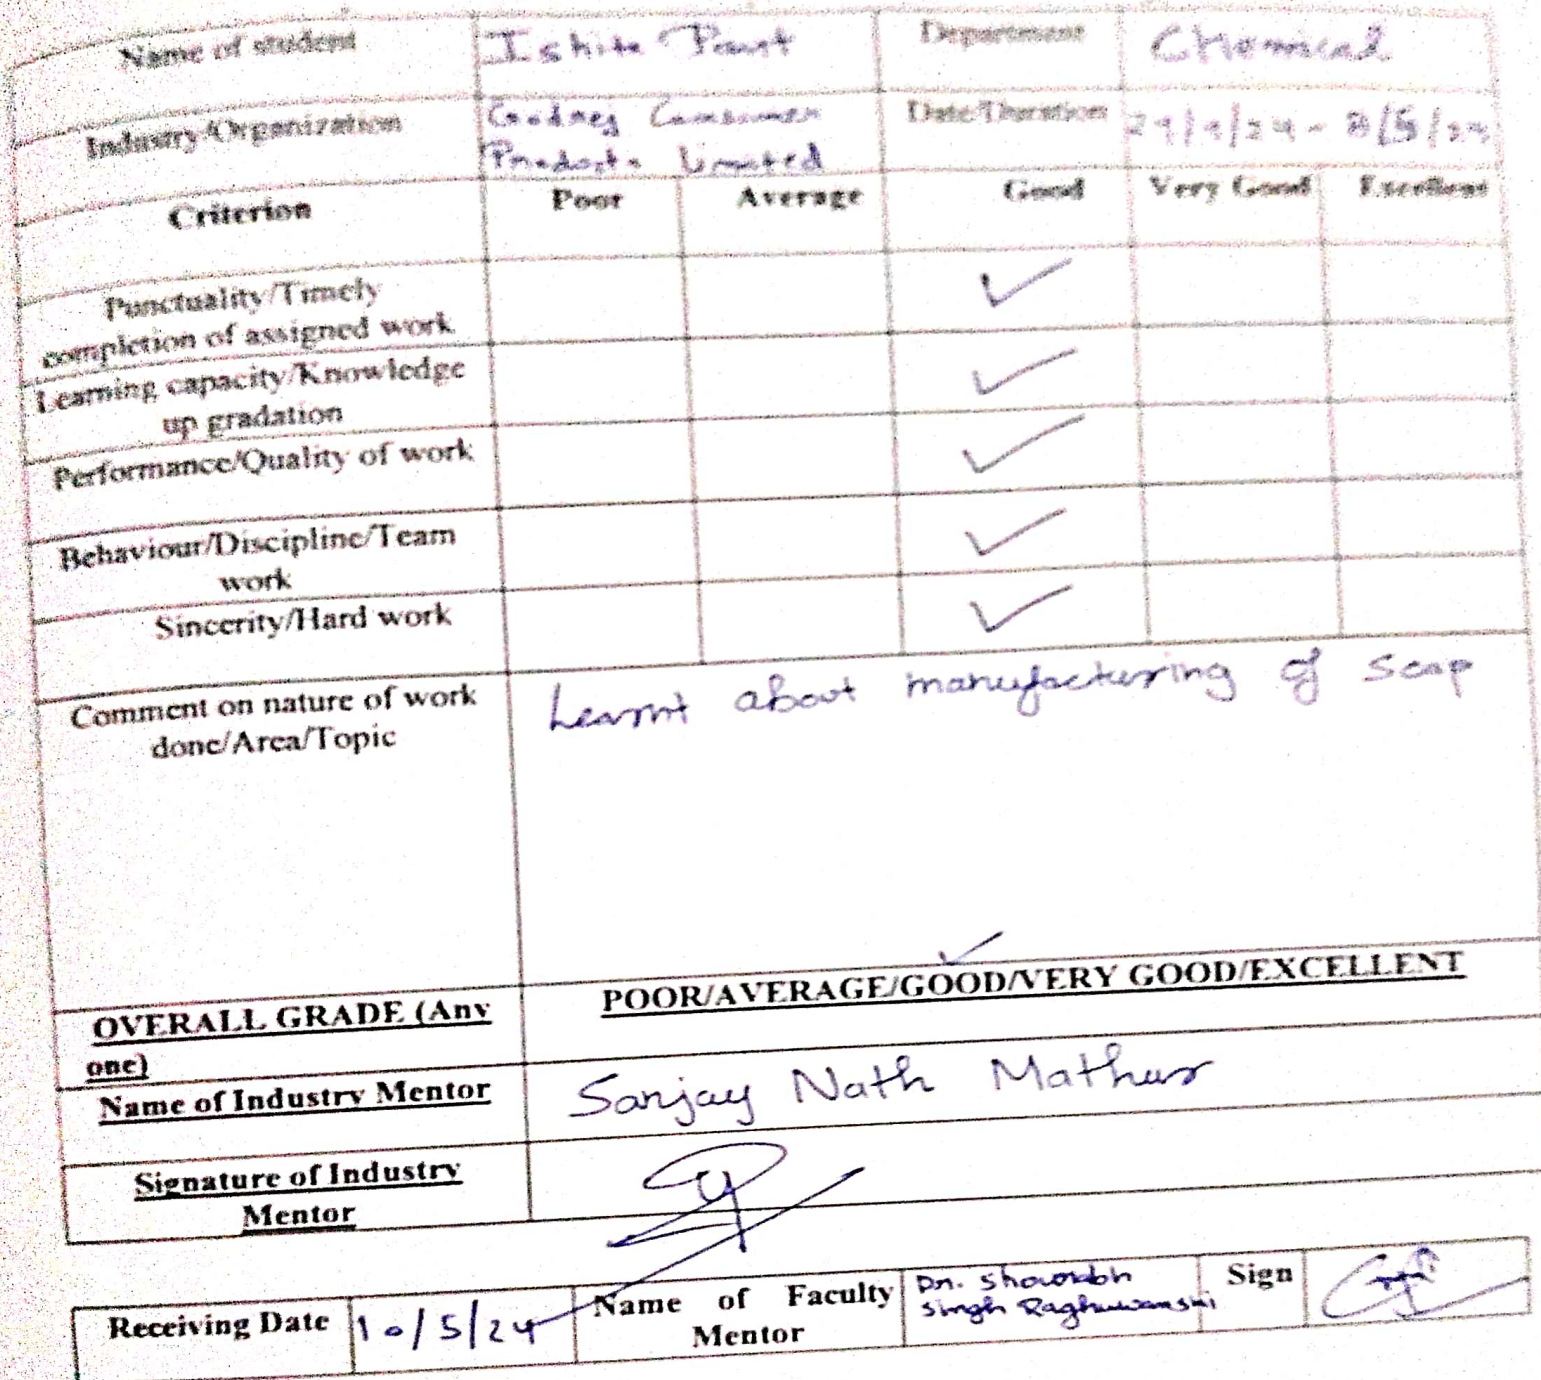 Name of student Ishita Pant Department Chemical
Industry/Organization Godrej Consumer Date/Duration
Products Limited
Criterion Poor Average Good Very Good Excellent
Punctuality/Timely ✓
completion of assigned work
Learning capacity/Knowledge ✓
up gradation
Performance/Quality of work ✓
Behaviour/Discipline/Team ✓
work
Sincerity/Hard work ✓
Comment on nature of work Learnt about manufacturing of soap
done/Area/Topic
✓
OVERALL GRADE (Any POOR/AVERAGE/GOOD/VERY GOOD/EXCELLENT
one)
Name of Industry Mentor Sanjay Nath Mathur
Signature of Industry
Mentor
Receiving Date 10/5/24 Name of Faculty Dr. Sign
Mentor Singh Raghuwanshi